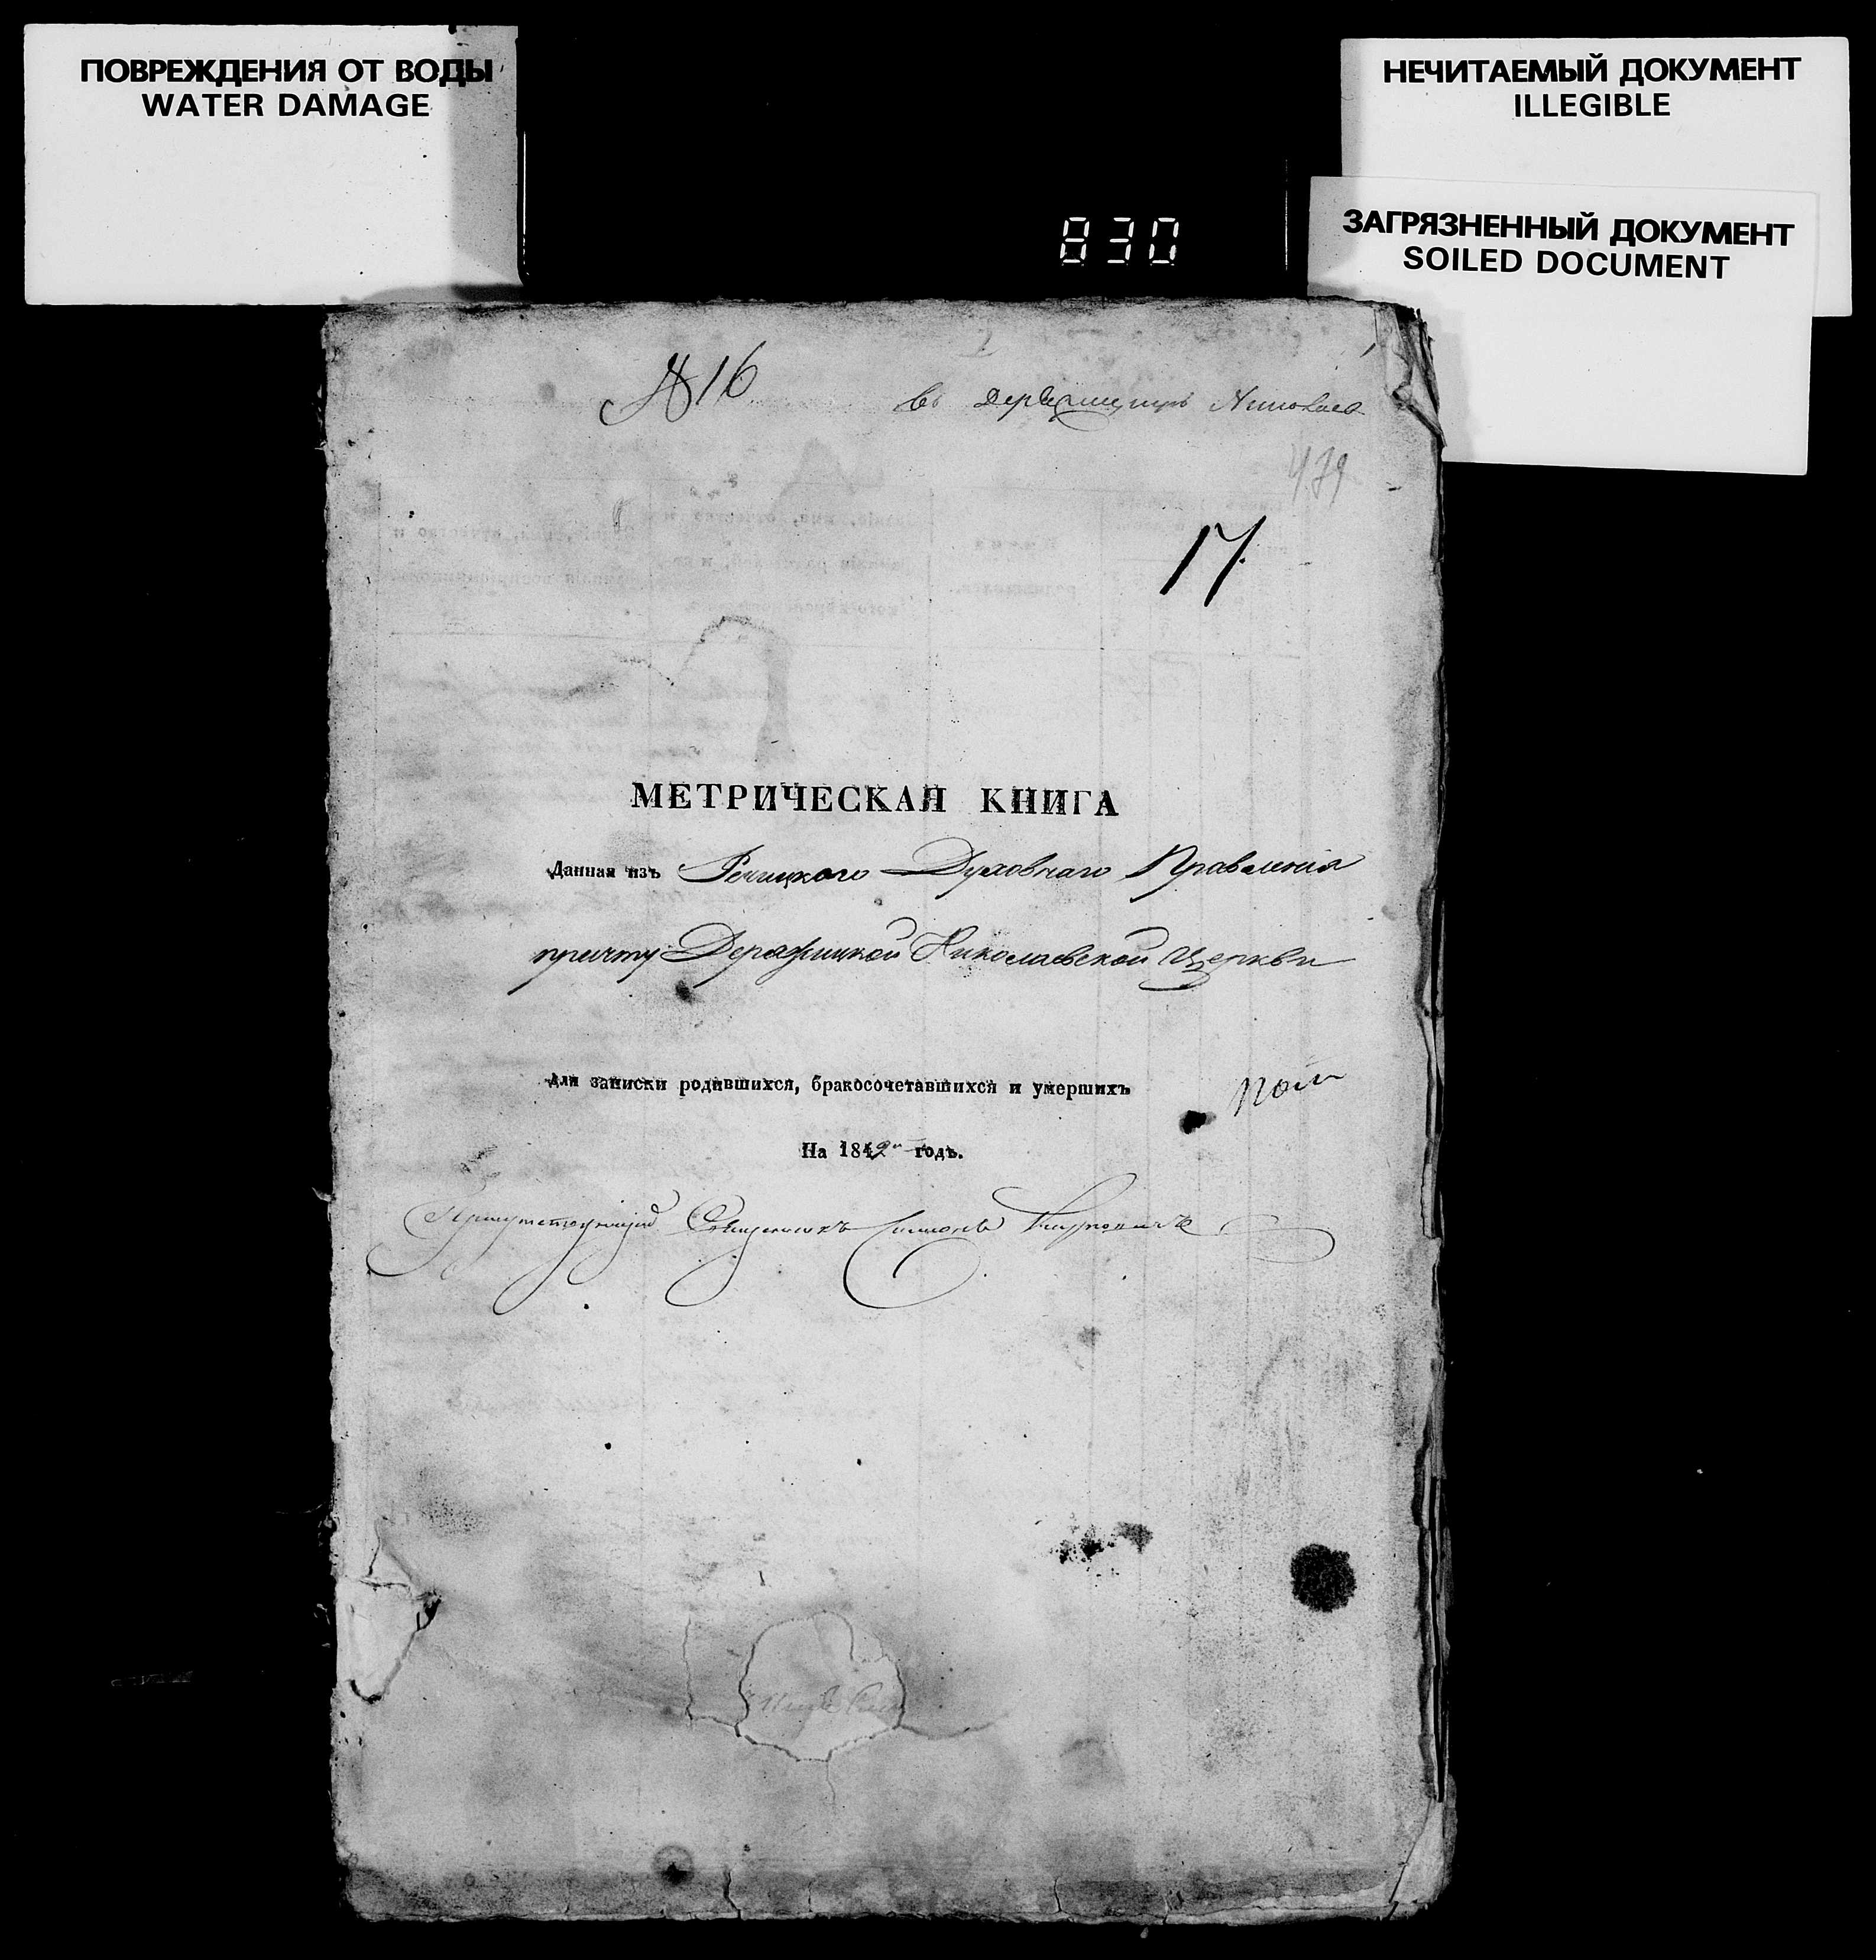 ПОВРЕЖДЕНИЯ ОТ ВОДЫ
WATER DAMAGE
НЕЧИТАЕМЫЙ ДОКУМЕНТ
ILLEGIBLE
ЗАГРЯЗНЕННЫЙ ДОКУМЕНТ
SOILED DOCUMENT
830
№ 16
479
17.
МЕТРИЧЕСКАЯ КНИГА
Данная изъ Речицкого Духовнаго Правленія
причту Деражицкой Николаевской Церкви
для записки родившихся, бракосочетавшихся и умершихъ
На 1842й годъ.
Присутствующій Священникъ Симонъ